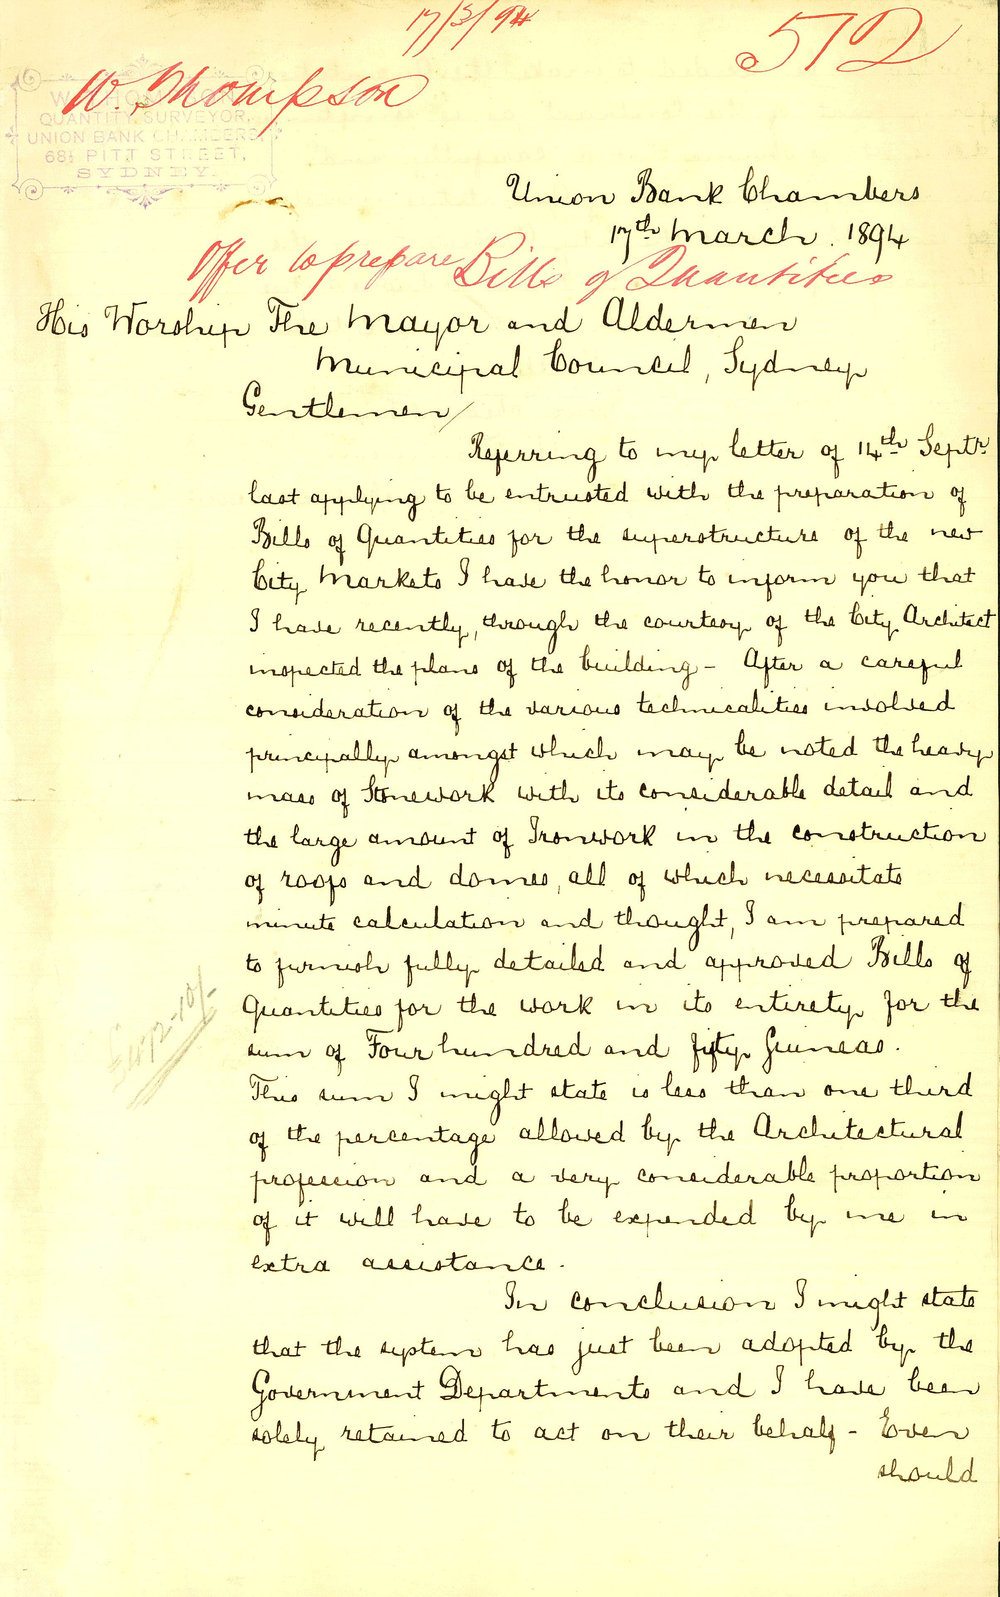 17/3/94
512
W. Thompson
W. THOMPSON
QUANTITY SURVEYOR,
UNION BANK CHAMBERS,
68½ PITT STREET,
SYDNEY.
Union Bank Chambers
17th March. 1894
Offer to prepare Bills of Quantities
His Worship The Mayor and Aldermen
Municipal Council, Sydney
Gentlemen/
Referring to my letter of 14th Septr
last applying to be entrusted with the preparation of
Bills of Quantities for the superstructure of the new
City Markets I have the honor to inform you that
I have recently, through the courtesy of the City Architect
inspected the plans of the building - After a careful
consideration of the various technicalities involved
principally amongst which may be noted the heavy
mass of Stonework with its considerable detail and
the large amount of Ironwork in the construction
of roofs and domes, all of which necessitate
minute calculation and thought, I am prepared
to furnish fully detailed and approved Bills of
Quantities for the work in its entirety for the
sum of Four hundred and fifty Guineas.
£472-10/-
This sum I might state is less than one third
of the percentage allowed by the Architectural
profession and a very considerable proportion
of it will have to be expended by me in
extra assistance.
In conclusion I might state
that the system has just been adopted by the
Government Departments and I have been
solely retained to act on their behalf - Even
should